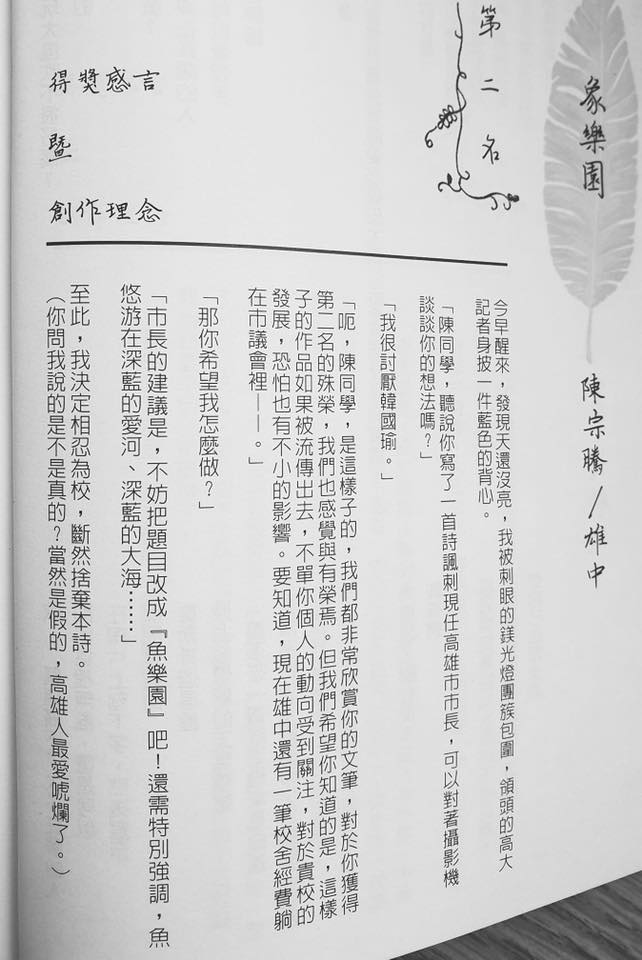 象樂園
陳宗騰/雄中
第二名
得獎感言
暨
創作理念
今早醒來，發現天還沒亮，我被刺眼的鎂光燈團簇包圍，領頭的高大
記者身披一件藍色的背心。
「陳同學，聽說你寫了一首詩諷刺現任高雄市市長，可以對著攝影機
談談你的想法嗎？」
「我很討厭韓國瑜。」
「呃，陳同學，是這樣子的，我們都非常欣賞你的文筆，對於你獲得
第二名的殊榮，我們也感覺與有榮焉。但我們希望你知道的是，這樣
子的作品如果被流傳出去，不單你個人的動向受到關注，對於貴校的
發展，恐怕也有不小的影響。要知道，現在雄中還有一筆校舍經費躺
在市議會裡——。」
「那你希望我怎麼做？」
「市長的建議是，不妨把題目改成『魚樂園』吧！還需特別強調，魚
悠游在深藍的愛河、深藍的大海……」
至此，我決定相忍為校，斷然捨棄本詩。
（你問我說的是不是真的？當然是假的，高雄人最愛唬爛了。）